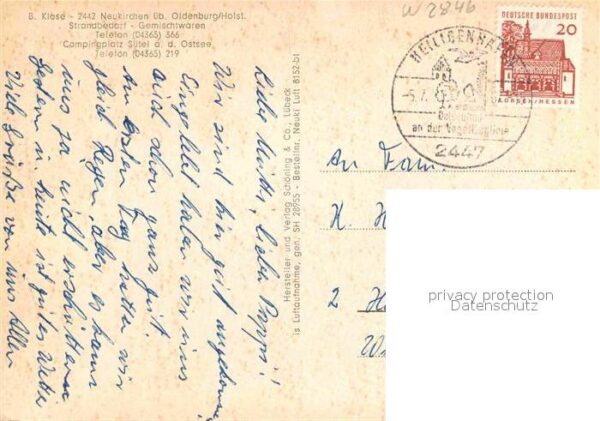 B. Klose - 2442 Neukirchen üb. Oldenburg/Holst.
Strandbedarf - Gemischtwaren
Telefon (04365) 366
Campingplatz Sütel a. d. Ostsee
Telefon (04365) 219
W 2846
DEUTSCHE BUNDESPOST
20
LORSCH/HESSEN
HEILIGENHAFEN
-5.7.
an der Vogelfluglinie
2447
Liebe Mutti, lieber Pappi!
Wir sind hier gut angekommen
Eingelebt haben wir uns
auch schon ganz gut.
Am ersten Tag hatten wir
gleich Regen, aber es kann
uns ja nicht erschüttern.
Gestern u. heute ist gutes Wetter
Viele Grüße von uns Allen
Hersteller und Verlag Schöning & Co., Lübeck
is Luftaufnahme, gen. SH 28955 - Bestellnr. Neuki Luft 8152-bl
An Fam.
K. H
2 H
privacy protection
Datenschutz